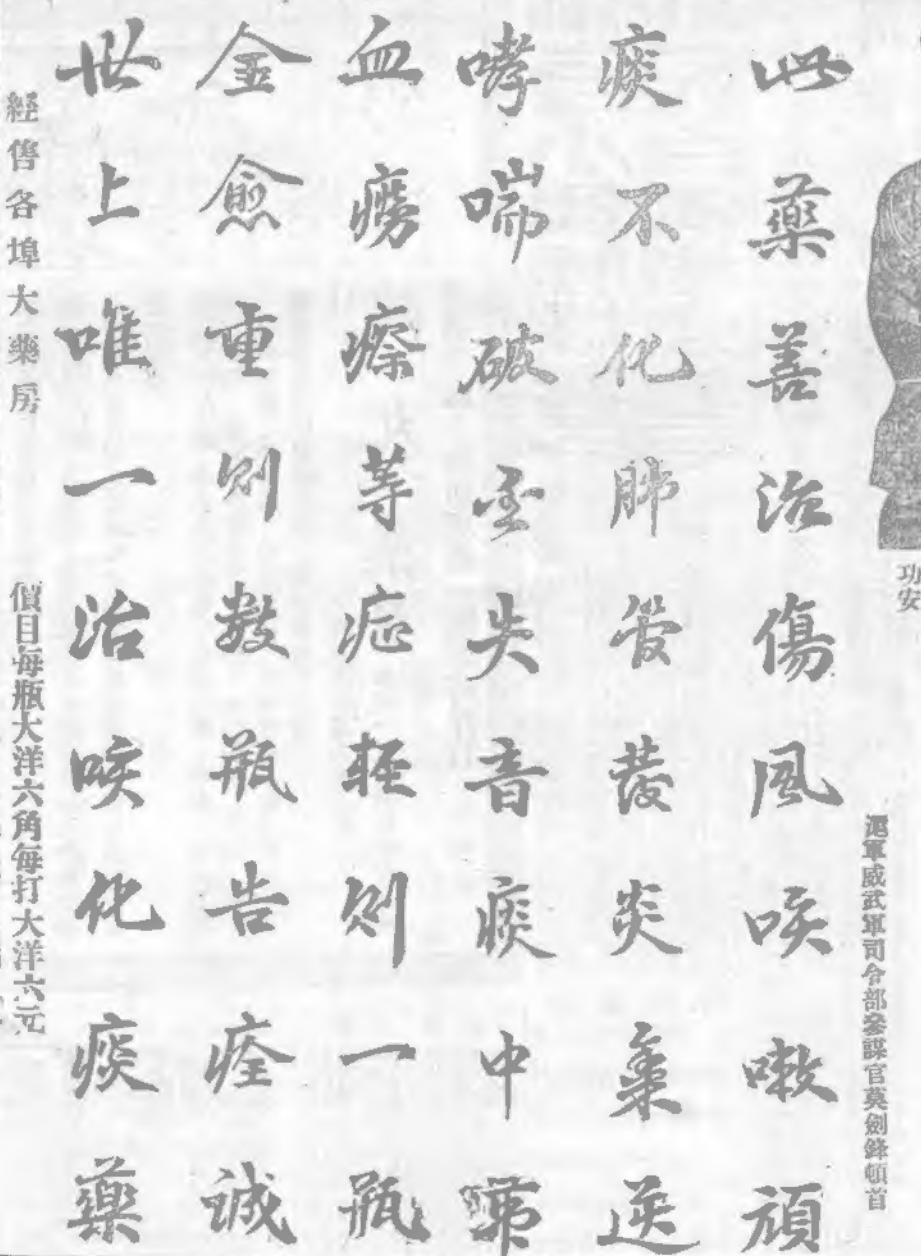 功安
滬軍威武軍司令部參謀官莫劍鋒頓首
此藥善治傷風咳嗽頑
痰不化肺管發炎氣逆
哮喘破金失音痰中帶
血癆瘵等症輕則一瓶
金愈重則數瓶告痊誠
世上唯一治咳化痰藥
經售各埠大藥房
價目每瓶大洋六角每打大洋六元